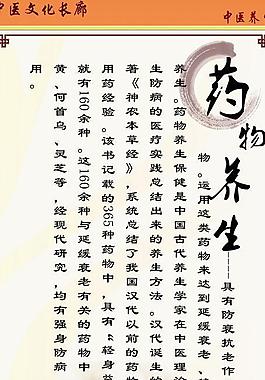 中医文化长廊
中医养
药物养生
——具有防衰抗老作
物。运用这类药物来达到延缓衰老、
养生。药物养生保健是中国古代养生学家在中医理论
生防病的医疗实践总结出来的养生方法。汉代诞生的
著《神农本草经》，系统总结了我国汉代以前的药物
用药经验。该书记载的365种药物中，具有“轻身益
就有160余种。这160余种与延缓衰老有关的药物中
黄、何首乌、灵芝等，经现代研究，均有强身防病
用。